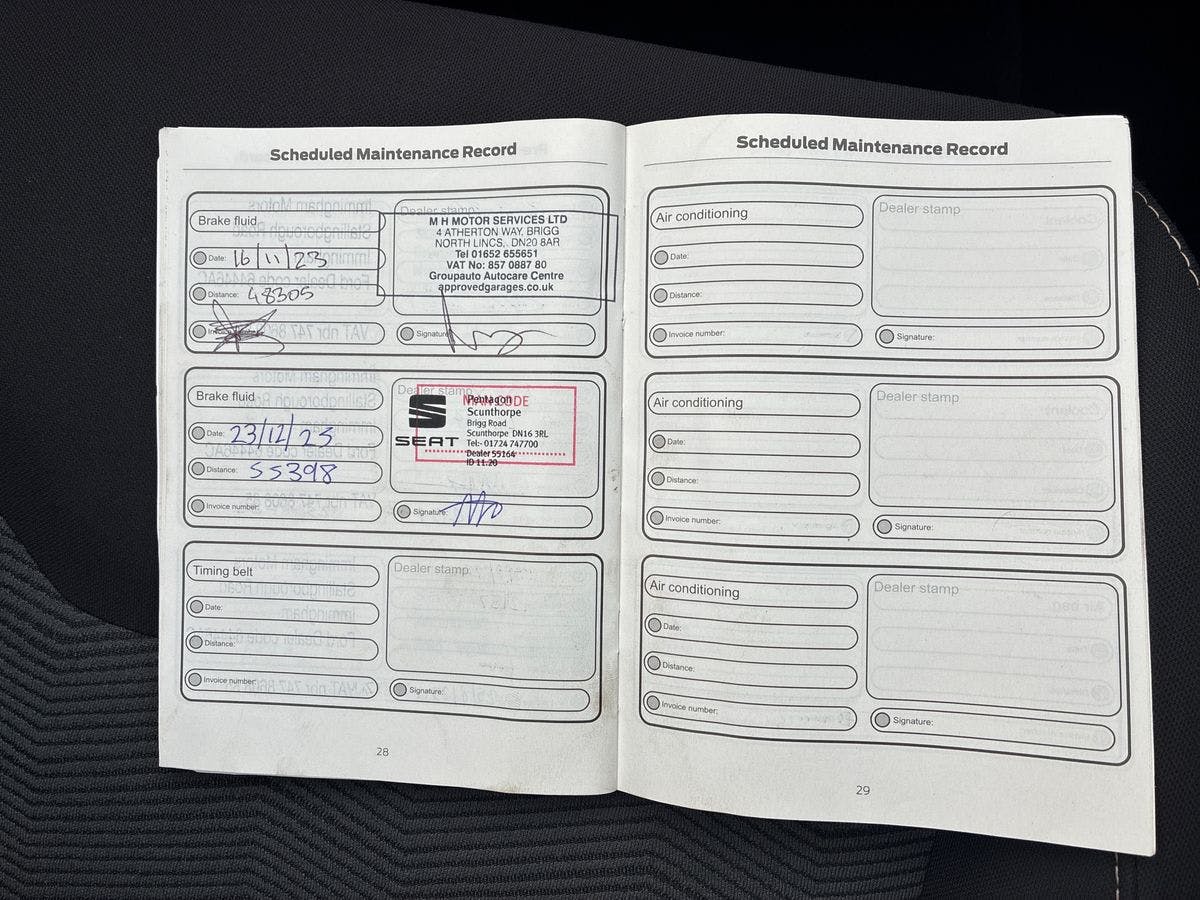 Scheduled Maintenance Record
Brake fluid
Date: 16/11/23
Distance: 48305
Dealer stamp:
M H MOTOR SERVICES LTD
4 ATHERTON WAY, BRIGG
NORTH LINCS, DN20 8AR
Tel 01652 655651
VAT No: 857 0887 80
Groupauto Autocare Centre
approvedgarages.co.uk
Signature:
Brake fluid
Date: 23/12/25
Distance: 55398
Invoice number:
Dealer stamp
SEAT
Pentagon
Scunthorpe
Brigg Road
Scunthorpe DN16 3RL
Tel:- 01724 747700
Dealer 55164
ID 11.20
Signature:
Timing belt
Date:
Distance:
Invoice number:
Dealer stamp
Signature:
28
Scheduled Maintenance Record
Air conditioning
Date:
Distance:
Invoice number:
Dealer stamp
Signature:
Air conditioning
Date:
Distance:
Invoice number:
Dealer stamp
Signature:
Air conditioning
Date:
Distance:
Invoice number:
Dealer stamp
Signature:
29